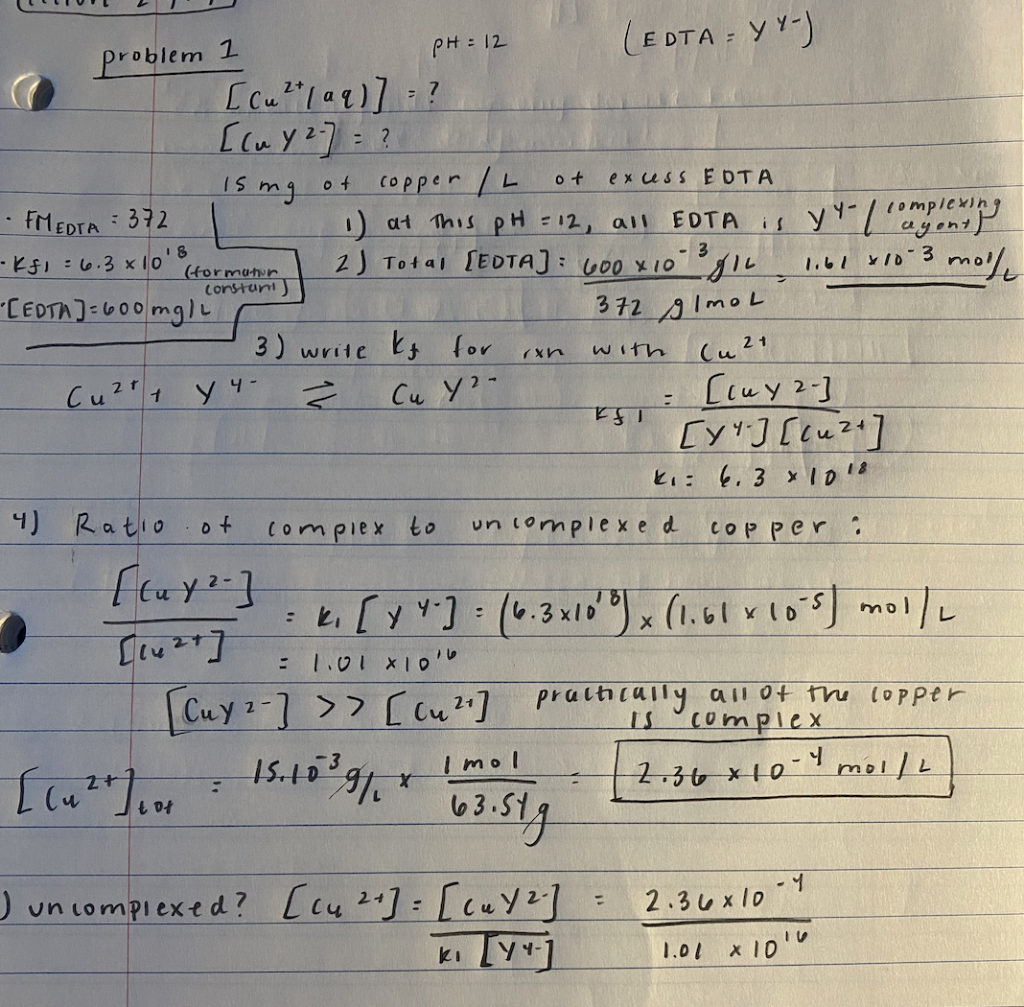 problem 1
pH = 12
(EDTA = Y⁴⁻)
[Cu²⁺(aq)] = ?
[CuY²⁻] = ?
15 mg of copper / L of excess EDTA
· FM EDTA = 372
· Kf1 = 6.3 x 10¹⁸ (formation constant)
· [EDTA] = 600 mg/L
1) at this pH = 12, all EDTA is Y⁴⁻ (complexing agent)
2) Total [EDTA] = 600 x 10⁻³ g/L / 372 g/mol = 1.61 x 10⁻³ mol/L
3) write Kf for rxn with Cu²⁺
Cu²⁺ + Y⁴⁻ ⇌ CuY²⁻
Kf1 = [CuY²⁻] / [Y⁴⁻][Cu²⁺]
K1 = 6.3 x 10¹⁸
4) Ratio of complex to uncomplexed copper :
[CuY²⁻] / [Cu²⁺] = K1 [Y⁴⁻] = (6.3x10¹⁸) x (1.61 x 10⁻⁵) mol/L
= 1.01 x 10¹⁶
[CuY²⁻] >> [Cu²⁺] practically all of the copper
is complex
[Cu²⁺]tot = 15.10⁻³ g/L x 1 mol / 63.54 g = 2.36 x 10⁻⁴ mol/L
) uncomplexed? [Cu²⁺] = [CuY²⁻] / K1 [Y⁴⁻] = 2.36 x 10⁻⁴ / 1.01 x 10¹⁶